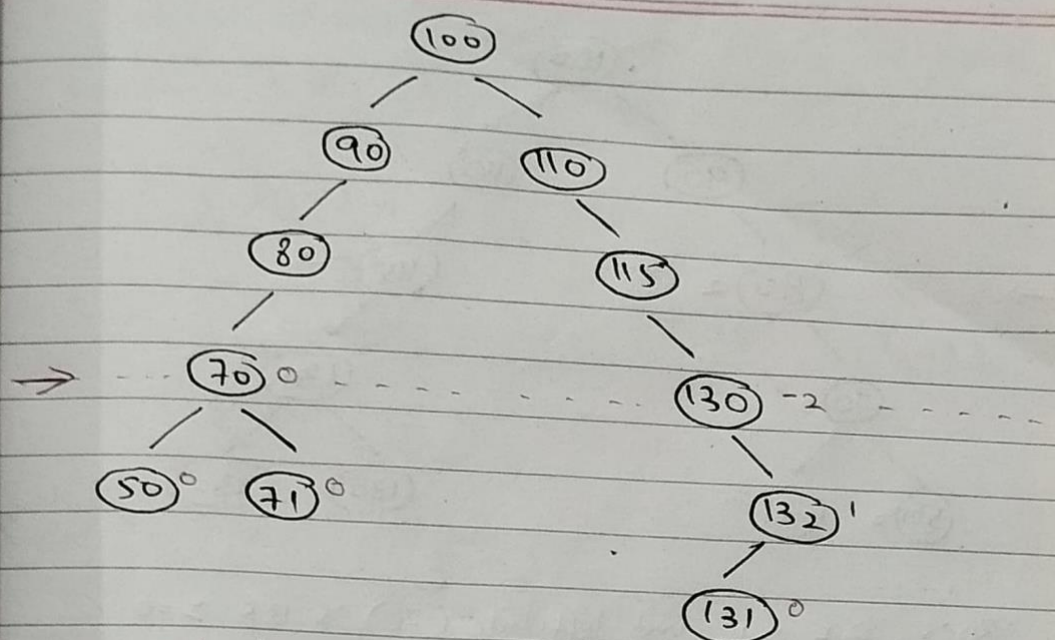 100
90 110
80 115
70 0 130 -2
50 0 71 0 132 1
131 0